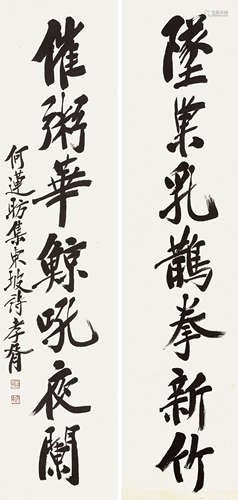 墜巢乳鵲拳新竹
催粥華鯨吼夜闌
何蓮昉集東坡詩 孝胥